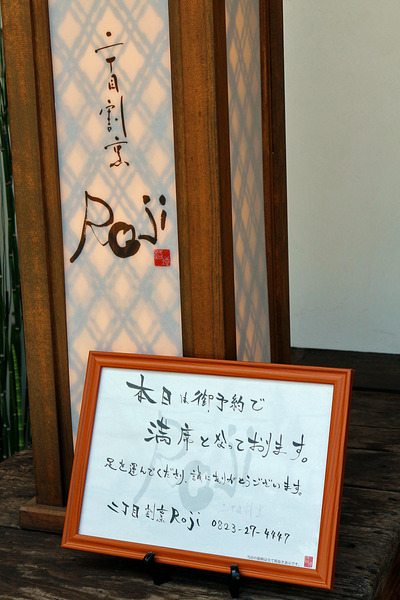 二丁目割烹
Roji
本日は御予約で
満席となっております。
足を運んでくださり、誠にありがとうございます。
二丁目割烹 Roji 0823-27-4447